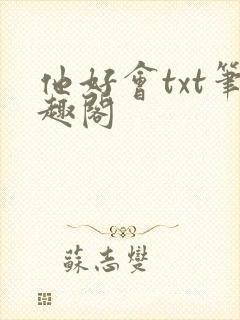 他好會txt筆
趣閣
蘇志燮